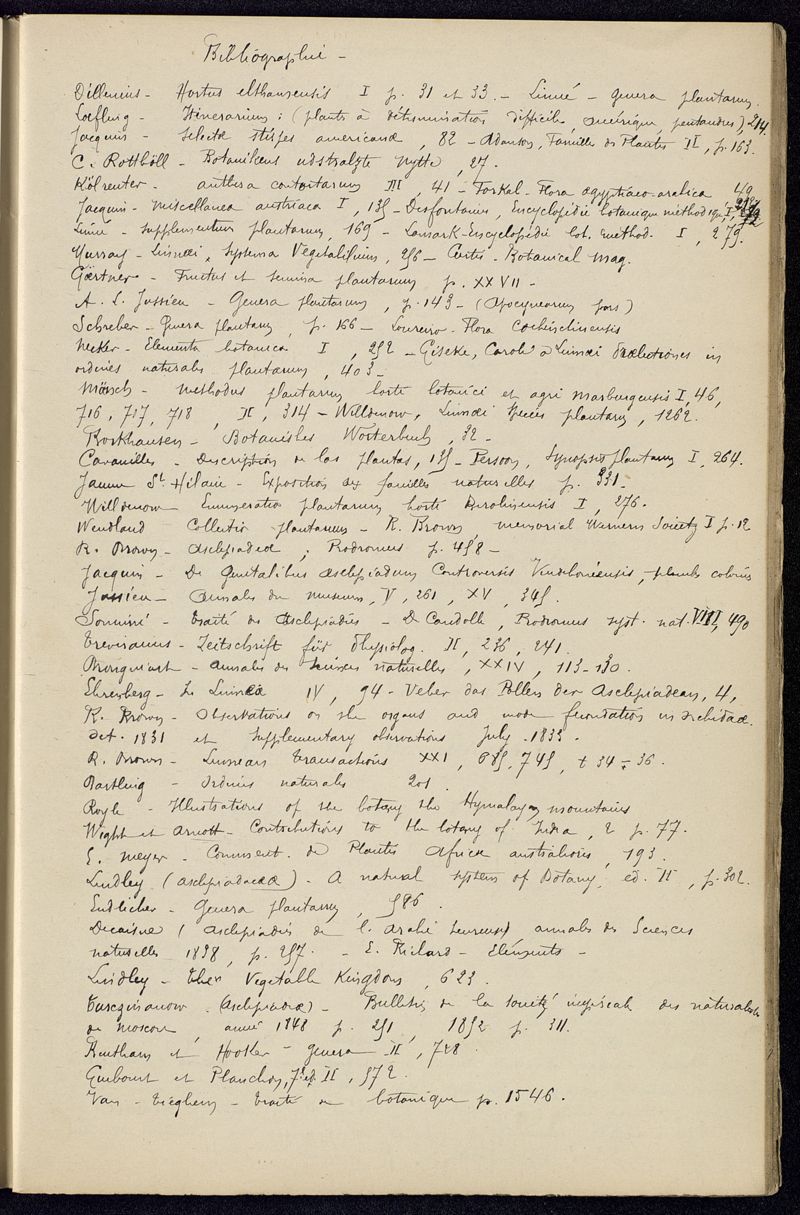 Bibliographie -
Dillenius - Hortus elthamensis I p. 31 et 33. - Linné - genera plantarum.
Loefling - Itinerarium : (plante à détermination difficile, américaine, pentandres), 214.
Jacquin - selectæ stirpes americanæ, 82 - Adanson, Familles des Plantes II, p. 163.
C. Rottböll - Botanikens udstralgte nytte, 27.
Kölreuter - anthera contortarum III, 41 - Forkal - Flora ægyptiaco-arabica 49
Jacquin - miscellanea austriaca I, 135 - Desfontaines, Encyclopédie botanique méthodique I, 212
Linné - supplementum plantarum, 169 - Lamark - Encyclopédie bot. method. I, 279.
Murray - Linnæi, Systema Vegetabilium, 256 - Curtis - Botanical mag.
Gærtner - Fructus et semina plantarum p. XXVII -
A. L. Jussieu - Genera plantarum, p. 143 - (Apocynearum pars)
Schreber - Genera plantarum, p. 166 - Loureiro - Flora Cochischinensis
Necker - Elementa botanica I, 252 - Giseke, Caroli a Linnæi Prælectiones in
ordines naturales plantarum, 403 -
Mönch - methodus plantarum horti botanici et agri Marburgensis I, 46,
716, 717, 718, II, 314 - Willdenow, Linnæi Species plantarum, 1262.
Borkhausen - Botanishes Wörterbuch, 32 -
Cavanilles - Descripcion de las plantas, 155 - Persoon, Synopsis plantarum I, 264.
Jaume St Hilaire - Exposition des familles naturelles p. 331 -
Willdenow Enumeratio plantarum horti Berolinensis I, 276.
Wendland Collectio plantarum - R. Brown, memorial Werneris Society I p. 12
R. Brown - asclepiadeæ ; Prodromus p. 458 -
Jacquin - De Genitalibus asclepiadeum Controversis Vindeboniensis, planches coloriées
Jussieu - Annales du museum, V, 261, XV, 345.
Sonnini - traité des asclepiadées - De Candolle, Prodromus syst. nat. VIII, 490
Treviranus - Zeitschrift für Physiolog. II, 236, 241.
Brongniart - annales des Sciences naturelles, XXIV, 113-130.
Ehrenberg - In Linnæa IV, 94 - Ueber das Pollen der Asclepiadeen, 4,
R. Brown - Observations on the organs and mode fecundation in Orchidæ.
Oct. 1831 et supplementary observations July. 1833.
R. Brown - Linnean transactions XXI, 685, 745, t 34 - 36.
Bartling - Ordines naturales 201
Royle - Illustrations of the botany the Hymalayan mountains
Wight et Arnott - Contributions to the botany of India, 2 p. 77.
E. Meyer - Comment. de Plantis Africæ australioris, 193.
Lindley (asclepiadaceæ) - A natural system of Botany, ed. II, p. 302.
Endlicher - Genera plantarum, 586.
Decaisne (Asclepiadées de l'Arabie heureuse) annales des Sciences
naturelles 1838, p. 257. - E. Richard - Eléments -
Lindley - The Vegetable Kingdom, 623.
Turczinanow (Asclepiadeæ) - Bulletin de la société impériale des naturalistes
de Moscou, année 1848 p. 251, 1852 p. 311.
Bentham et Hooker - genera II, 728.
Guibourt et Planchon, 7e ed. II, 572.
Van - Tieghem - traité de botanique p. 1546.